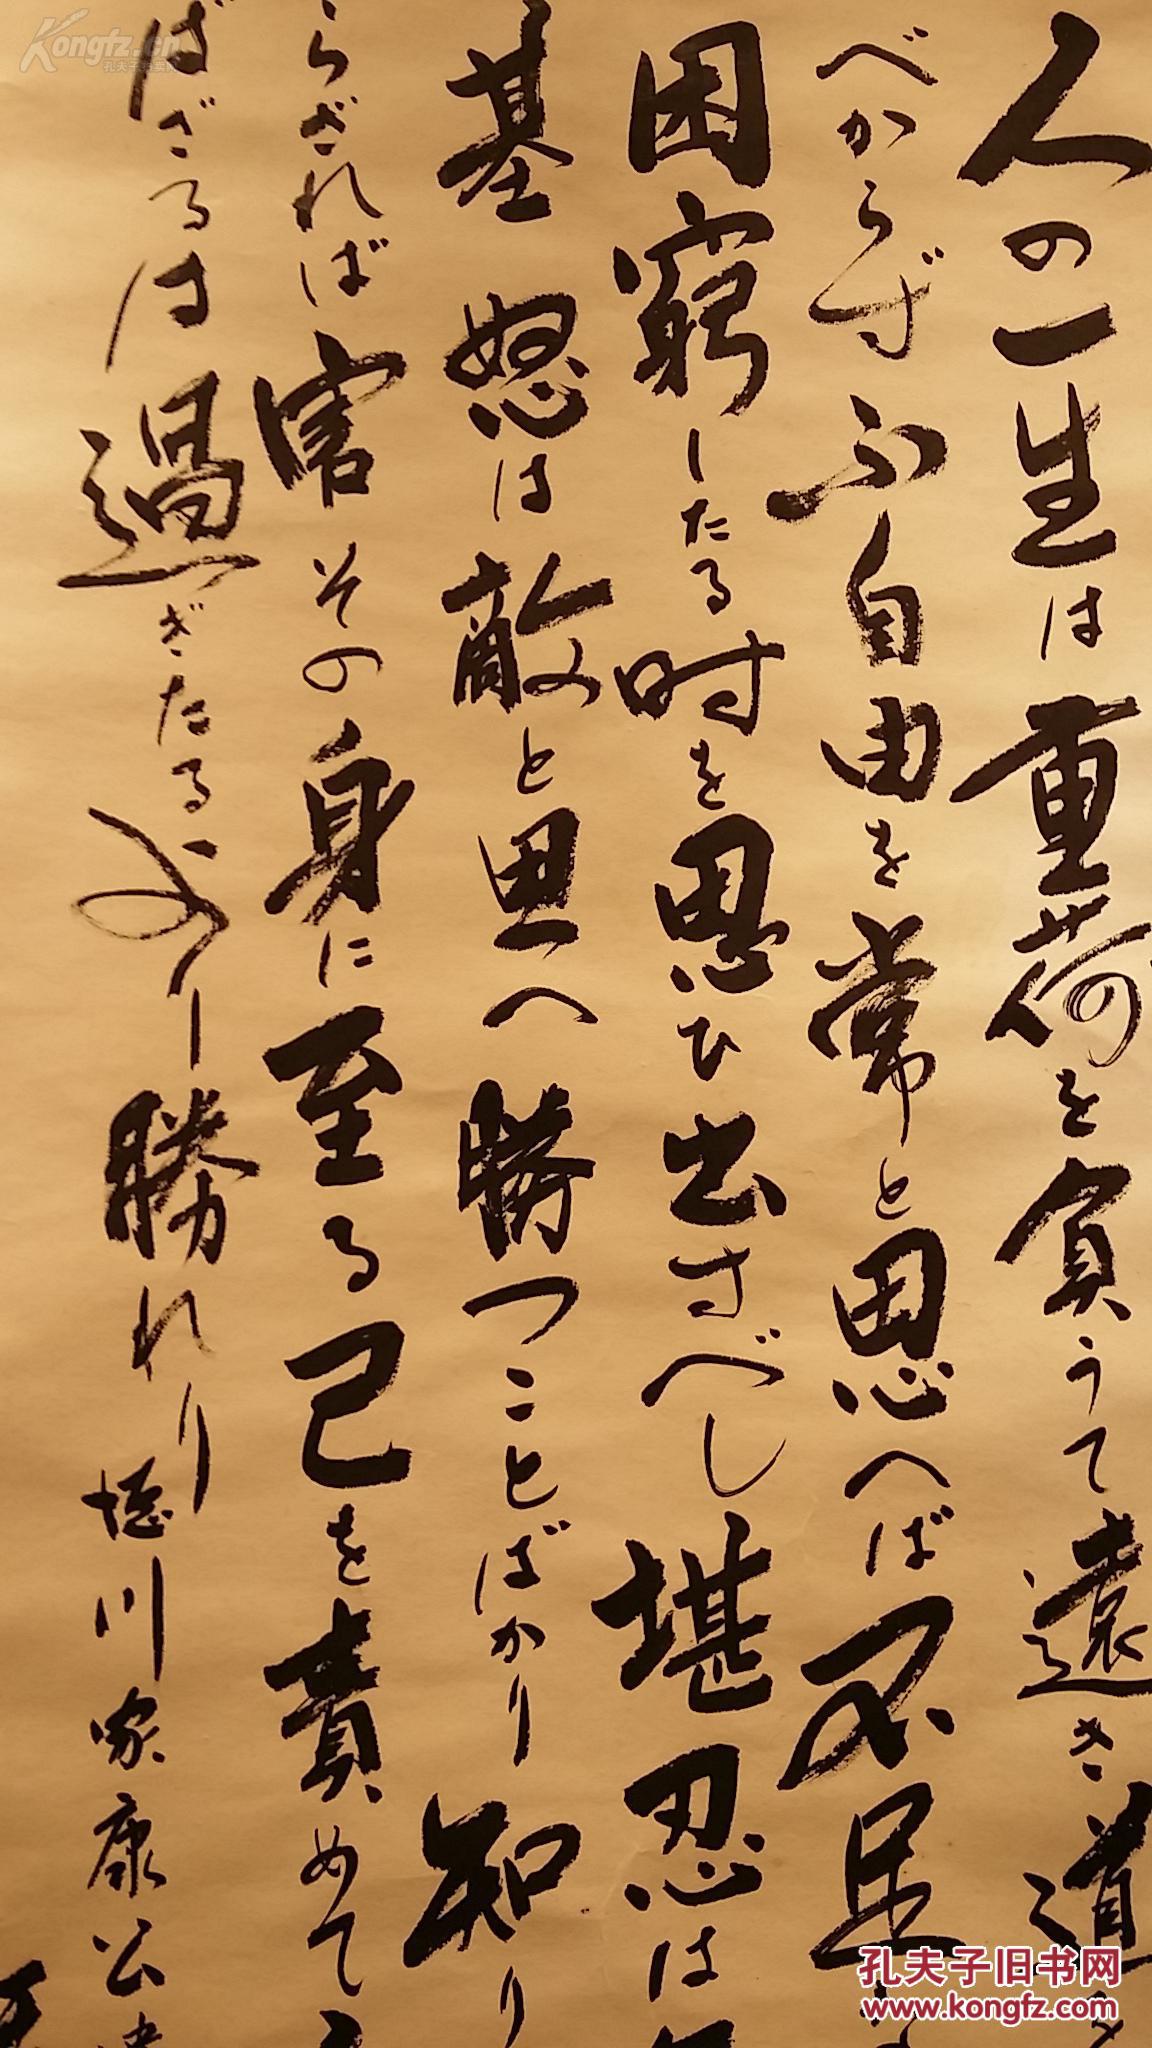 人の一生は重荷を負うて遠き道を
べからず不自由を常と思へば不足
困窮したる時を思ひ出すべし堪忍は
基 怒は敵と思へ勝つことばかり知り
らざれば害その身に至る己を責めて
ばざるは過ぎたるより勝れり
徳川家康公
Kongfz.cn
孔夫子旧书网
www.kongfz.com